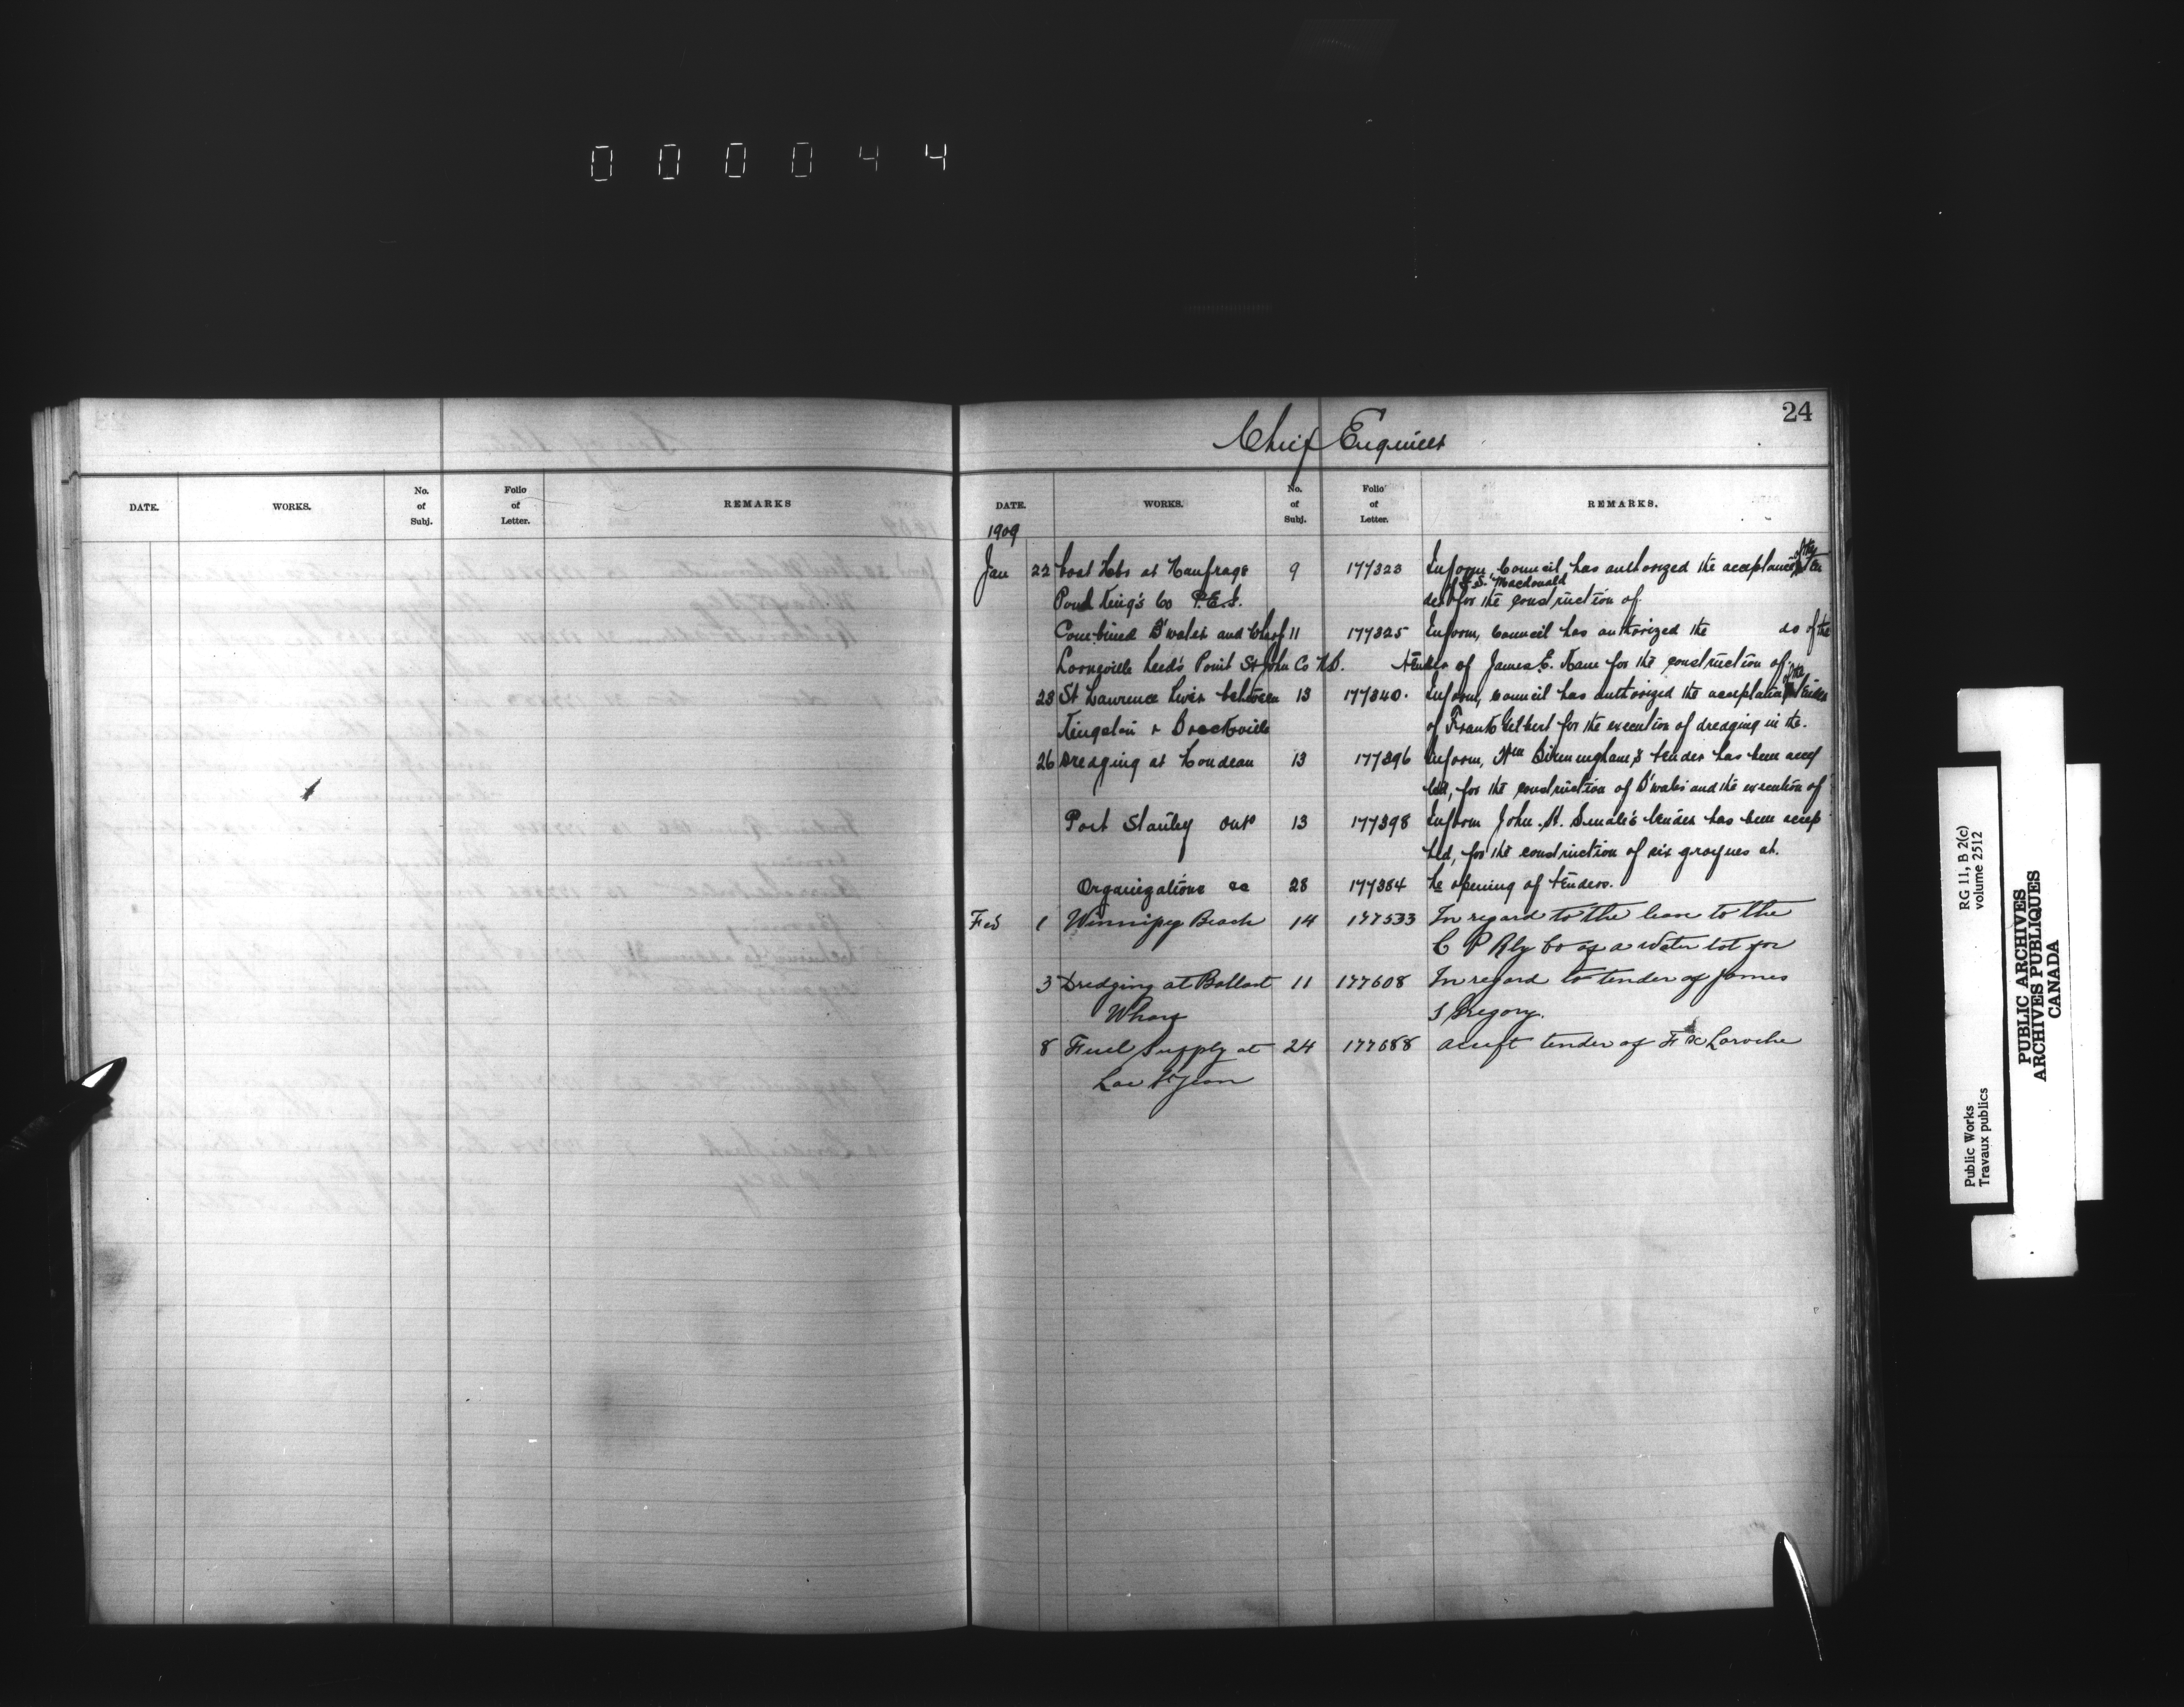 0 0 0 0 4 4
24
Chief Engineer
DATE. WORKS. No. of Subj. Folio of Letter. REMARKS
DATE. WORKS. No. of Subj. Folio of Letter. REMARKS.
1909
Jan 22 boat Hbr at Naufrage 9 177323 Inform, Council has authorized the acceptance of the ten
Pond King's Co P.E.I. der of J.S. Macdonald for the construction of
Combined B'water and Wharf 11 177325 Inform, Council has authorized the do of the
Lorneville Leed's Point St John Co N.B. tender of James E. Kane for the construction of.
23 St Lawrence River between 13 177340. Inform, Council has authorized the acceptance of the tender
Kingston & Brockville of Frank Gilbert for the execution of dredging in the.
26 Dredging at Rondeau 13 177396 Inform, Wm Birmingham's tender has been accep
ted, for the construction of B'water and the execution of
Port Stanley Ont 13 177398 Inform John. H. Smale's tender has been accep
ted, for the construction of six groynes at.
Organizations &c 28 177384 Re opening of tenders.
Feb 1 Winnipeg Beach 14 177533 In regard to the lease to the
C P Rly Co of a water lot for
3 Dredging at Ballast 11 177608 In regard to tender of James
Wharf S Gregory.
8 Fuel Supply at 24 177688 accept tender of F X Laroche
Lac St Jean
Public Works
Travaux publics
RG 11, B 2(c)
volume 2512
PUBLIC ARCHIVES
ARCHIVES PUBLIQUES
CANADA